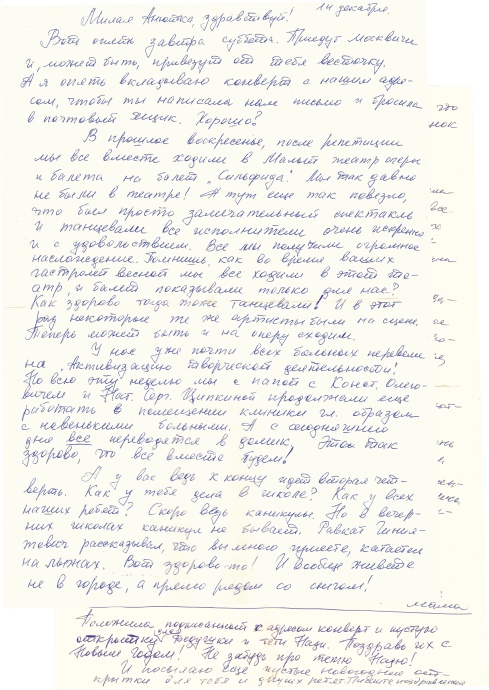 14 декабря.
Милая Анютка, здравствуй!
Вот опять завтра суббота. Приедут москвичи
и, может быть, привезут от тебя весточку.
А я опять вкладываю конверт с нашим адре-
сом, чтобы ты написала нам письмо и бросила
в почтовый ящик. Хорошо?
В прошлое воскресенье, после репетиции
мы все вместе ходили в Малый театр оперы
и балета на балет „Сильфида". Мы так давно
не были в театре! А тут еще так повезло,
что был просто замечательный спектакль
и танцевали все исполнители очень искренно
и с удовольствием. Все мы получили огромное
наслаждение. Помнишь, как во время ваших
гастролей весной мы все ходили в этот те-
атр, и балет показывали только для нас?
Как здорово тогда тоже танцевали! И в этот
раз некоторые те же артисты были на сцене.
Теперь может быть и на оперу сходим.
У нас уже почти всех больных перевели
на „Активизацию творческой деятельности!
Но всю эту неделю мы с папой с Конст. Олего-
вичем и Нат. Серг. Циткиной продолжали еще
работать в помещении клиники гл. образом
с новенькими больными. А с сегодняшнего
дня все переводятся в домик, Это так
здорово, что все вместе будем!
А у вас ведь к концу идет вторая чет-
верть. Как у тебя дела в школе? Как у всех
наших ребят? Скоро ведь каникулы. Но в вечер-
них школах каникул не бывает. Равкат
рассказывал, что вы много гуляете, катаетесь
на лыжах. Вот здорово-то! И вообще живете
не в городе, а прямо рядом со снегом!
мама
Положила подписанный с адресом конверт и пустую
открытку для дедушки и тети Нади. Поздравь их с
Новым Годом! Не забудь про тетю Надю!
И посылаю еще пустые новогодние от-
крытки для тебя и других ребят. Пишите поздравления